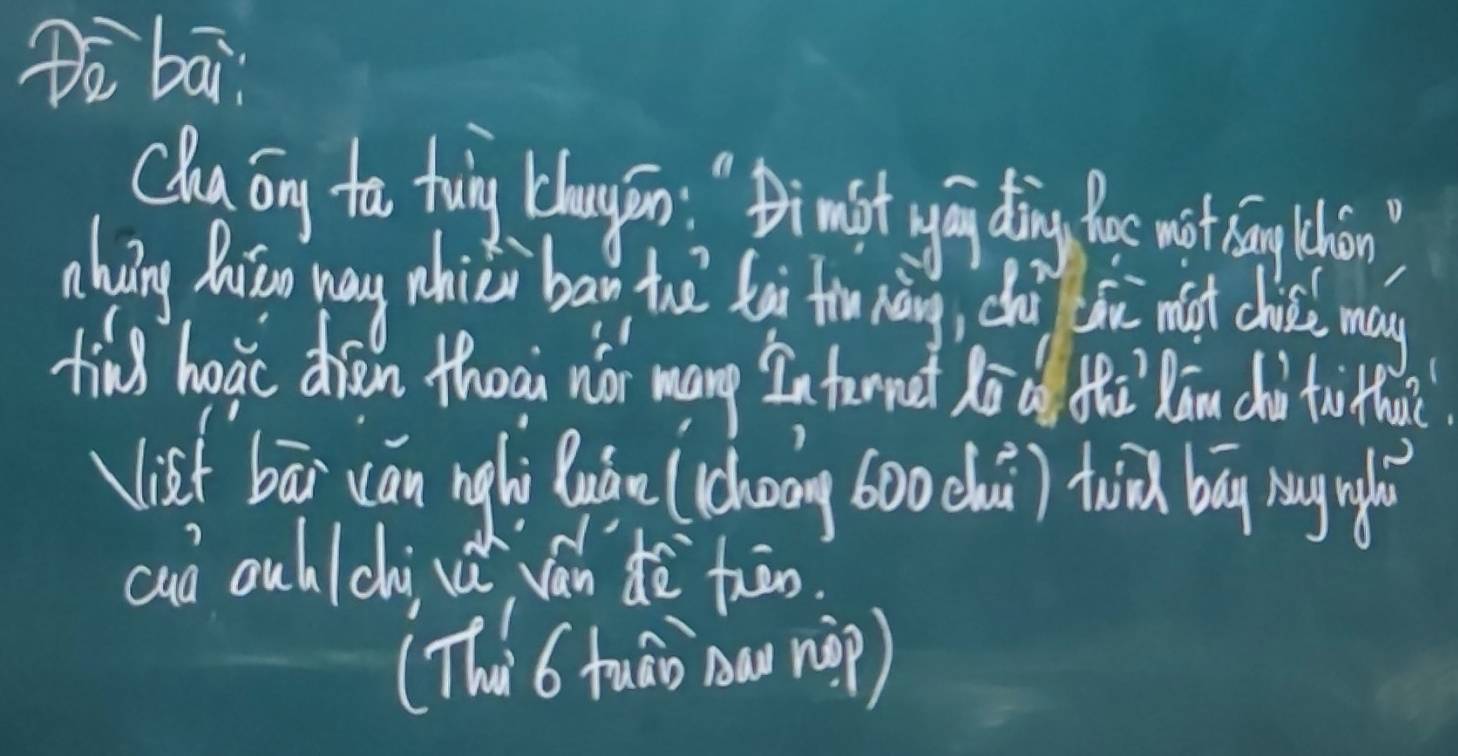 Đề bài:
Cha ông ta từng khuyên: "Đi một ngày đàng, học một sàng khôn"
nhưng hiện nay nhiều bạn trẻ lại tin rằng, chỉ cần một chiếc máy
tính hoặc điện thoại nối mạng Internet là có thể làm chủ tri thức.
Viết bài văn nghị luận (khoảng 600 chữ) trình bày suy nghĩ
của anh/chị về vấn đề trên.
(Thứ 6 tuần sau nộp)